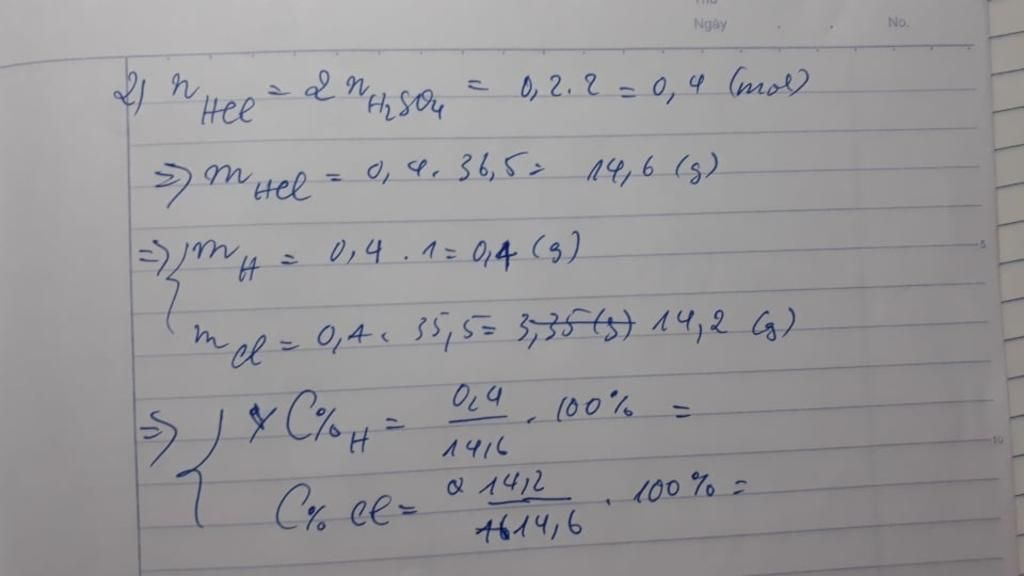 Thu
Ngày . . No.
2) n HCl = 2 n H₂SO₄ = 0,2.2 = 0,4 (mol)
=> m HCl = 0,4. 36,5 = 14,6 (g)
=> { m H = 0,4 . 1 = 0,4 (g)
5
m Cl = 0,4. 35,5 = 3,35 (g) 14,2 (g)
=> { C% H = 0,4 / 14,6 . 100% =
10
C% Cl = 14,2 / 14,6 . 100% =